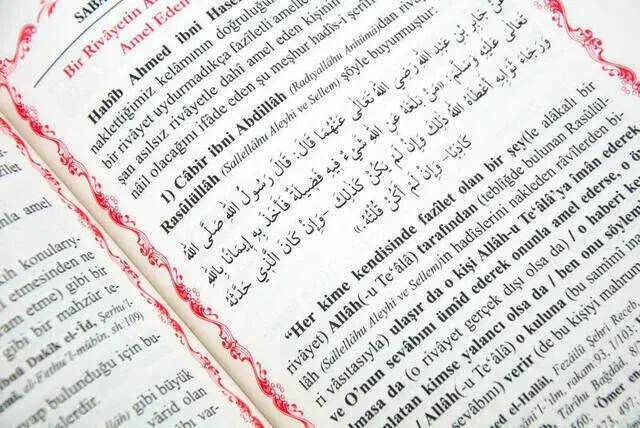 SABA
Bir Rivâyetin A
Amel Eden
Habîb Ahmed ibni Hase
naklettiğimiz kelâmının doğruluğu
bir rivâyet uydurmadıkça fazîletli
şan asılsız rivâyetle dahi amel eden kişinin
nâil olacağını ifâde eden şu meşhur hadîs-i şerif
1) Câbir ibni Abdillâh (Radıyallâhu Anhümâ)dan riv
Rasûlüllâh (Sallellâhu Aleyhi ve Sellem) şöyle buyurmuştur:
عَنْ جَابِرِ بْنِ عَبْدِ اللهِ رَضِيَ اللهُ تَعَالَى عَنْهُمَا قَالَ: قَالَ رَسُولُ اللهِ صَلَّى اللهُ
تَعَالَى عَلَيْهِ وَسَلَّمَ: «مَنْ بَلَغَهُ عَنِ اللهِ شَيْءٌ فِيهِ فَضِيلَةٌ فَأَخَذَ بِهِ إِيمَانًا بِاللهِ
وَرَجَاءَ ثَوَابِهِ أَعْطَاهُ اللهُ ذٰلِكَ وَإِنْ لَمْ يَكُنْ كَذٰلِكَ -وَإِنْ كَانَ الَّذِي حَدَّثَهُ
كَاذِبًا- وَإِنْ لَمْ أَكُنْ قُلْتُهُ»
“Her kime kendisinde fazîlet olan bir şey(le alâkalı bir
rivâyet) Allâh(-u Te‘âlâ) tarafından (tebliğde bulunan Rasûlül-
lâh (Sallellâhu Aleyhi ve Sellem)in hadîslerini nakleden râvilerden bi-
ri vâsıtasıyla) ulaşır da o kişi Allâh-u Te‘âlâ’ya îmân ederek
ve O’nun sevâbını ümîd ederek onunla amel ederse, o
lmasa da (o rivâyet gerçek dışı olsa da) / o haberi ke
nlatan kimse yalancı olsa da / ben onu söyle
/ Allâh(-u Te‘âlâ) o kuluna (bu sanîmî in
sevâbını) verir (de bu kişiyi mahrum
ed el-Halâl, Fezâilü Şehri Receb
rakam:93, 1/102
Târîhu Bağdâd,
nla amel
ah konularıy-
etmesinden ne
ram etme) gibi bir
gibi bir mahzûr te-
Dakîk el-îd, Şerhu’l-
el-Fethu’l-mübîn, sh:109)
vap bulunduğu için bu-
işlerdir.
) gibi büyük
vârid var-